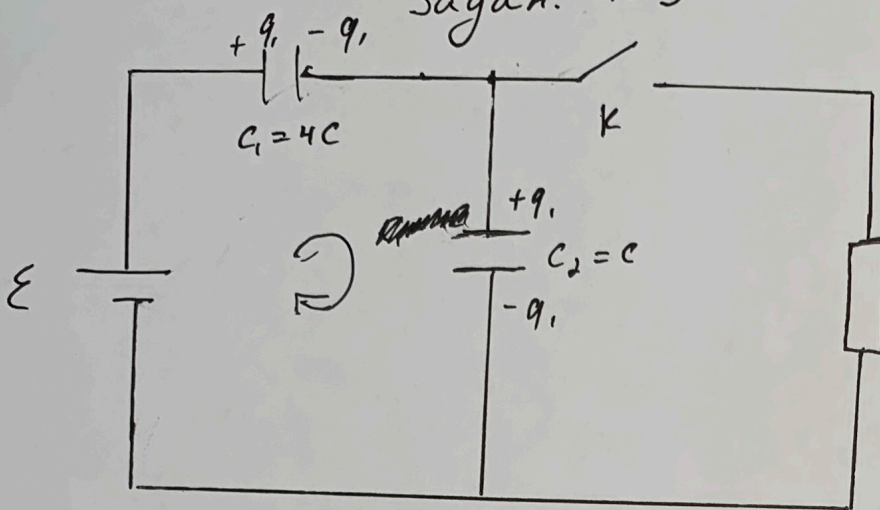 + q₁ - q₁
C₁ = 4C
K
+q₁
C₂ = C
- q₁
ℰ